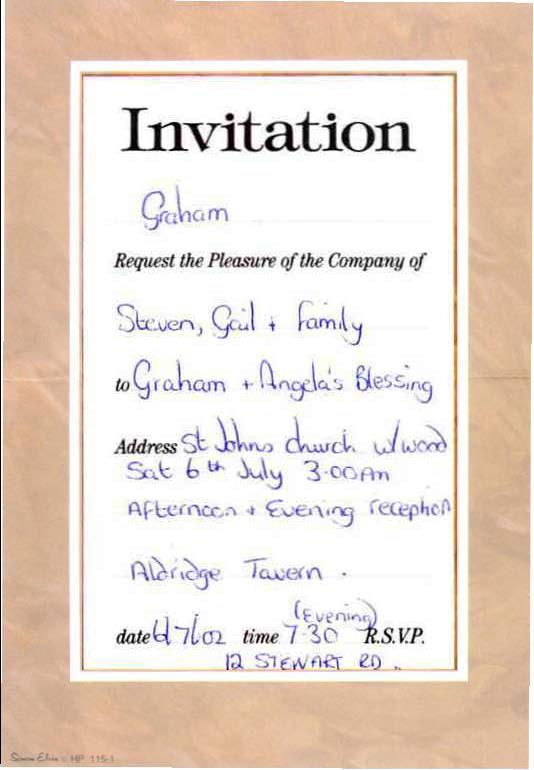 Invitation
Graham
Request the Pleasure of the Company of
Steven, Gail + family
to Graham + Angela's Blessing
Address St Johns church w/wood
Sat 6th July 3.00Am
Afternoon + Evening reception
Aldridge Tavern .
(Evening)
date 6/7/02 time 7.30 R.S.V.P.
12 STEWART RD ..
Simon Elvin © HP 115-1